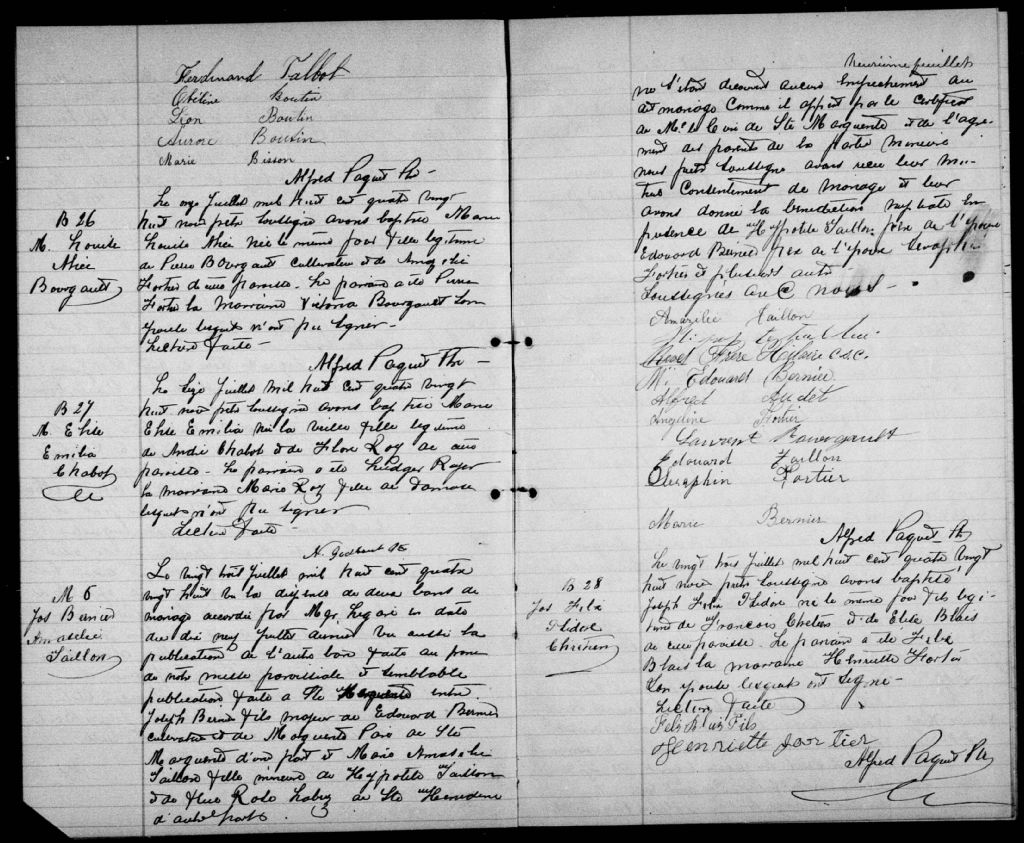 Ferdinand Talbot
Obéline Boutin
Léon Boutin
Aurore Boutin
Marie Bisson
Alfred Paquet Ptre
B 26
M. Louise
Alice
Bourgault
Le onze Juillet mil huit cent quatre vingt
huit nous prêtre soussigné avons baptisé Marie
Louise Alice née le même jour fille légitime
de Pierre Bourgault cultivateur et de
Fortier de cette paroisse. Le parrain a été Pierre
Fortier la marraine Victoria Bourgault son
épouse lesquels n'ont pu signer
Lecture faite
Alfred Paquet Ptre
B 27
M. Elise
Emilia
Chabot
Le seize Juillet mil huit cent quatre vingt
huit nous prêtre soussigné avons baptisé Marie
Elise Emilia née la veille fille légitime
de André Chabot et de Flore Roy de cette
paroisse. Le parrain a été Ludger Royer
la marraine Marie Roy fille de Damase
lesquels n'ont pu signer
Lecture faite
N. Godbout Ptre
M 6
Jos Bernier
Amazélie
Taillon
Le vingt trois Juillet mil huit cent quatre
vingt huit vu la dispense de deux bans de
mariage accordée par Mgr Legaré en date
du dix neuf Juillet dernier vu aussi la
publication de l'autre ban faite au prône
de notre messe paroissiale et semblable
publication faite a Ste Marguerite entre
Joseph Bernier fils majeur de Edouard Bernier
cultivateur et de Marguerite Paré de Ste
Marguerite d'une part et Marie Amazélie
Taillon fille mineure de Hyppolite Taillon
et de feue Rose de Ste Hénédine
d'autre part
Neuvième feuillet
ne s'étant découvert aucun empêchement au
dit mariage comme il appert par le certificat
de Mr le Curé de Ste Marguerite et de l'agré-
ment des parents de la partie mineure
nous prêtre soussigné avons reçu leur mu-
tuel consentement de mariage et leur
avons donné la bénédiction nuptiale en
présence de Hyppolite Taillon père de l'épouse
Edouard Bernier père de l'époux Séraphin
Fortier et plusieurs autres
soussignés avec nous
Amazélie Taillon
Frère Hilaire c.s.c.
Edouard Bernier
Alfred Audet
Angéline Fortier
Laurent Bourgault
Edouard Taillon
Séraphin Fortier
Marie Bernier
Alfred Paquet Ptre
B 28
Jos Félix
Isidore
Chrétien
Le vingt trois Juillet mil huit cent quatre vingt
huit nous prêtre soussigné avons baptisé
Joseph Félix Isidore né le même jour fils légi-
time de François Chrétien et de Elise Blais
de cette paroisse. Le parrain a été Félix
Blais la marraine Henriette Fortier
son épouse lesquels ont signé
Lecture faite
Felix Blais Fils
Henriette fortier
Alfred Paquet Ptre